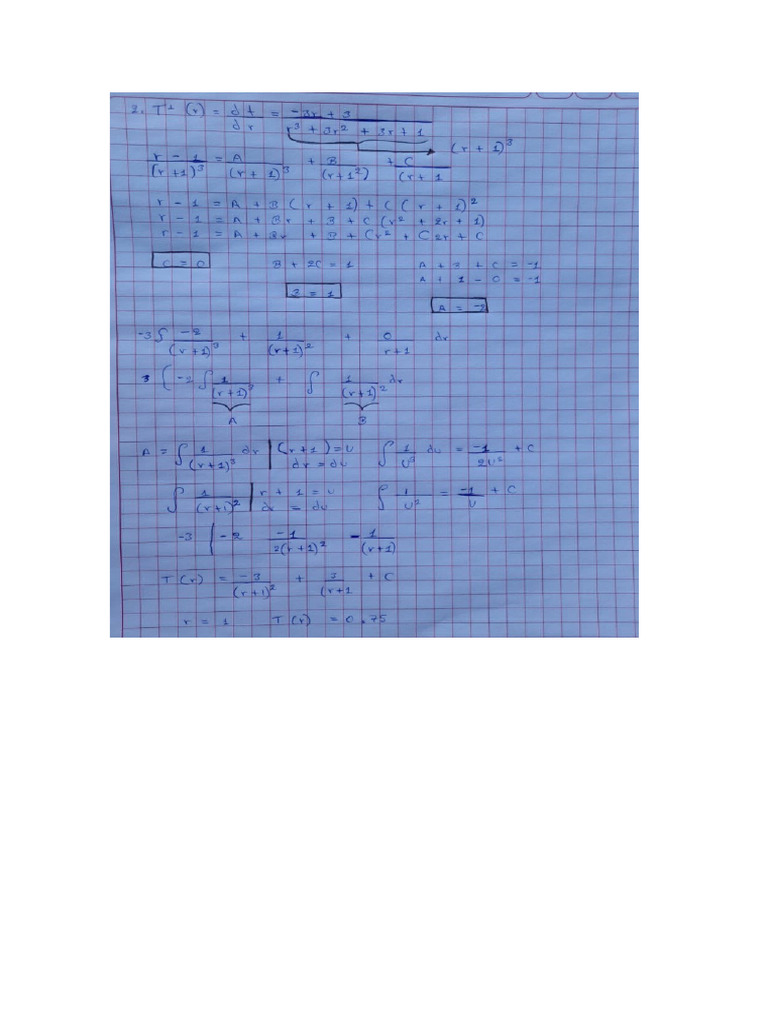 2. T' (r) = dt/dr = (-3r + 3)/(r³ + 3r² + 3r + 1) → (r + 1)³
(r - 1)/(r + 1)³ = A/(r + 1)³ + B/(r + 1²) + C/(r + 1
r - 1 = A + B (r + 1) + C (r + 1)²
r - 1 = A + Br + B + C (r² + 2r + 1)
r - 1 = A + Br + B + Cr² + C2r + C
C = 0 B + 2C = 1 A + B + C = -1
A + 1 - 0 = -1
B = 1
A = -2
-3 ∫ -2/(r + 1)³ + 1/(r + 1)² + 0/(r + 1) dr
3 ( -2 ∫ 1/(r + 1)³ + ∫ 1/(r + 1)² dr
A B
A = ∫ 1/(r + 1)³ dr | (r + 1) = u ∫ 1/u³ du = -1/2u² + C
dr = du
∫ 1/(r + 1)² | r + 1 = u ∫ 1/u² = -1/u + C
dr = du
-3 | -2 -1/2(r + 1)² - 1/(r + 1)
T (r) = -3/(r + 1)² + 3/(r + 1 + C
r = 1 T (r) = 0.75